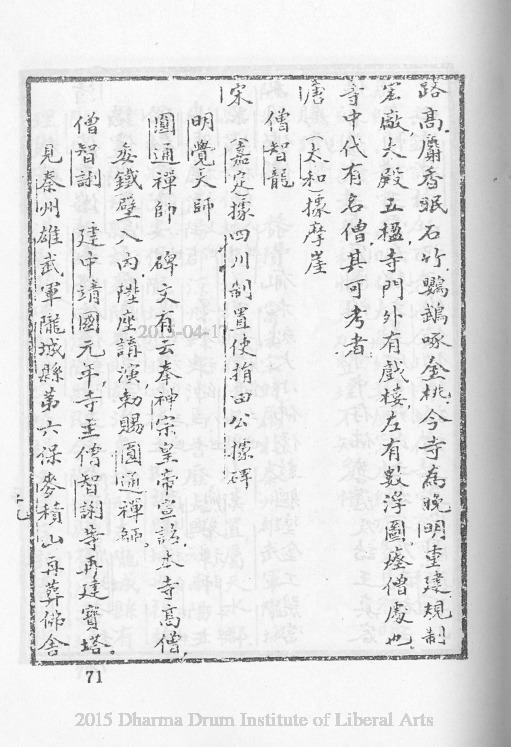 路高麝香眠石竹鸚鵡啄金桃今寺為晚明重建規制
宏敞大殿五楹寺門外有戲樓左右數浮圖瘞僧處也
寺中代有名僧其可考者
唐(太和)據摩崖
僧智龍
宋(嘉定)據四川制置使捐田公據碑
明覺大師
圓通禪師 碑文有云奉神宗皇帝宣詔本寺高僧
秀鐵壁入內陞座講演勅賜圓通禪師
僧智訓 建中靖國元年寺主僧智訓等再建寶塔
見秦州雄武軍隴城縣第六保麥積山再葬佛舍
71
2015-04-17
2015 Dharma Drum Institute of Liberal Arts